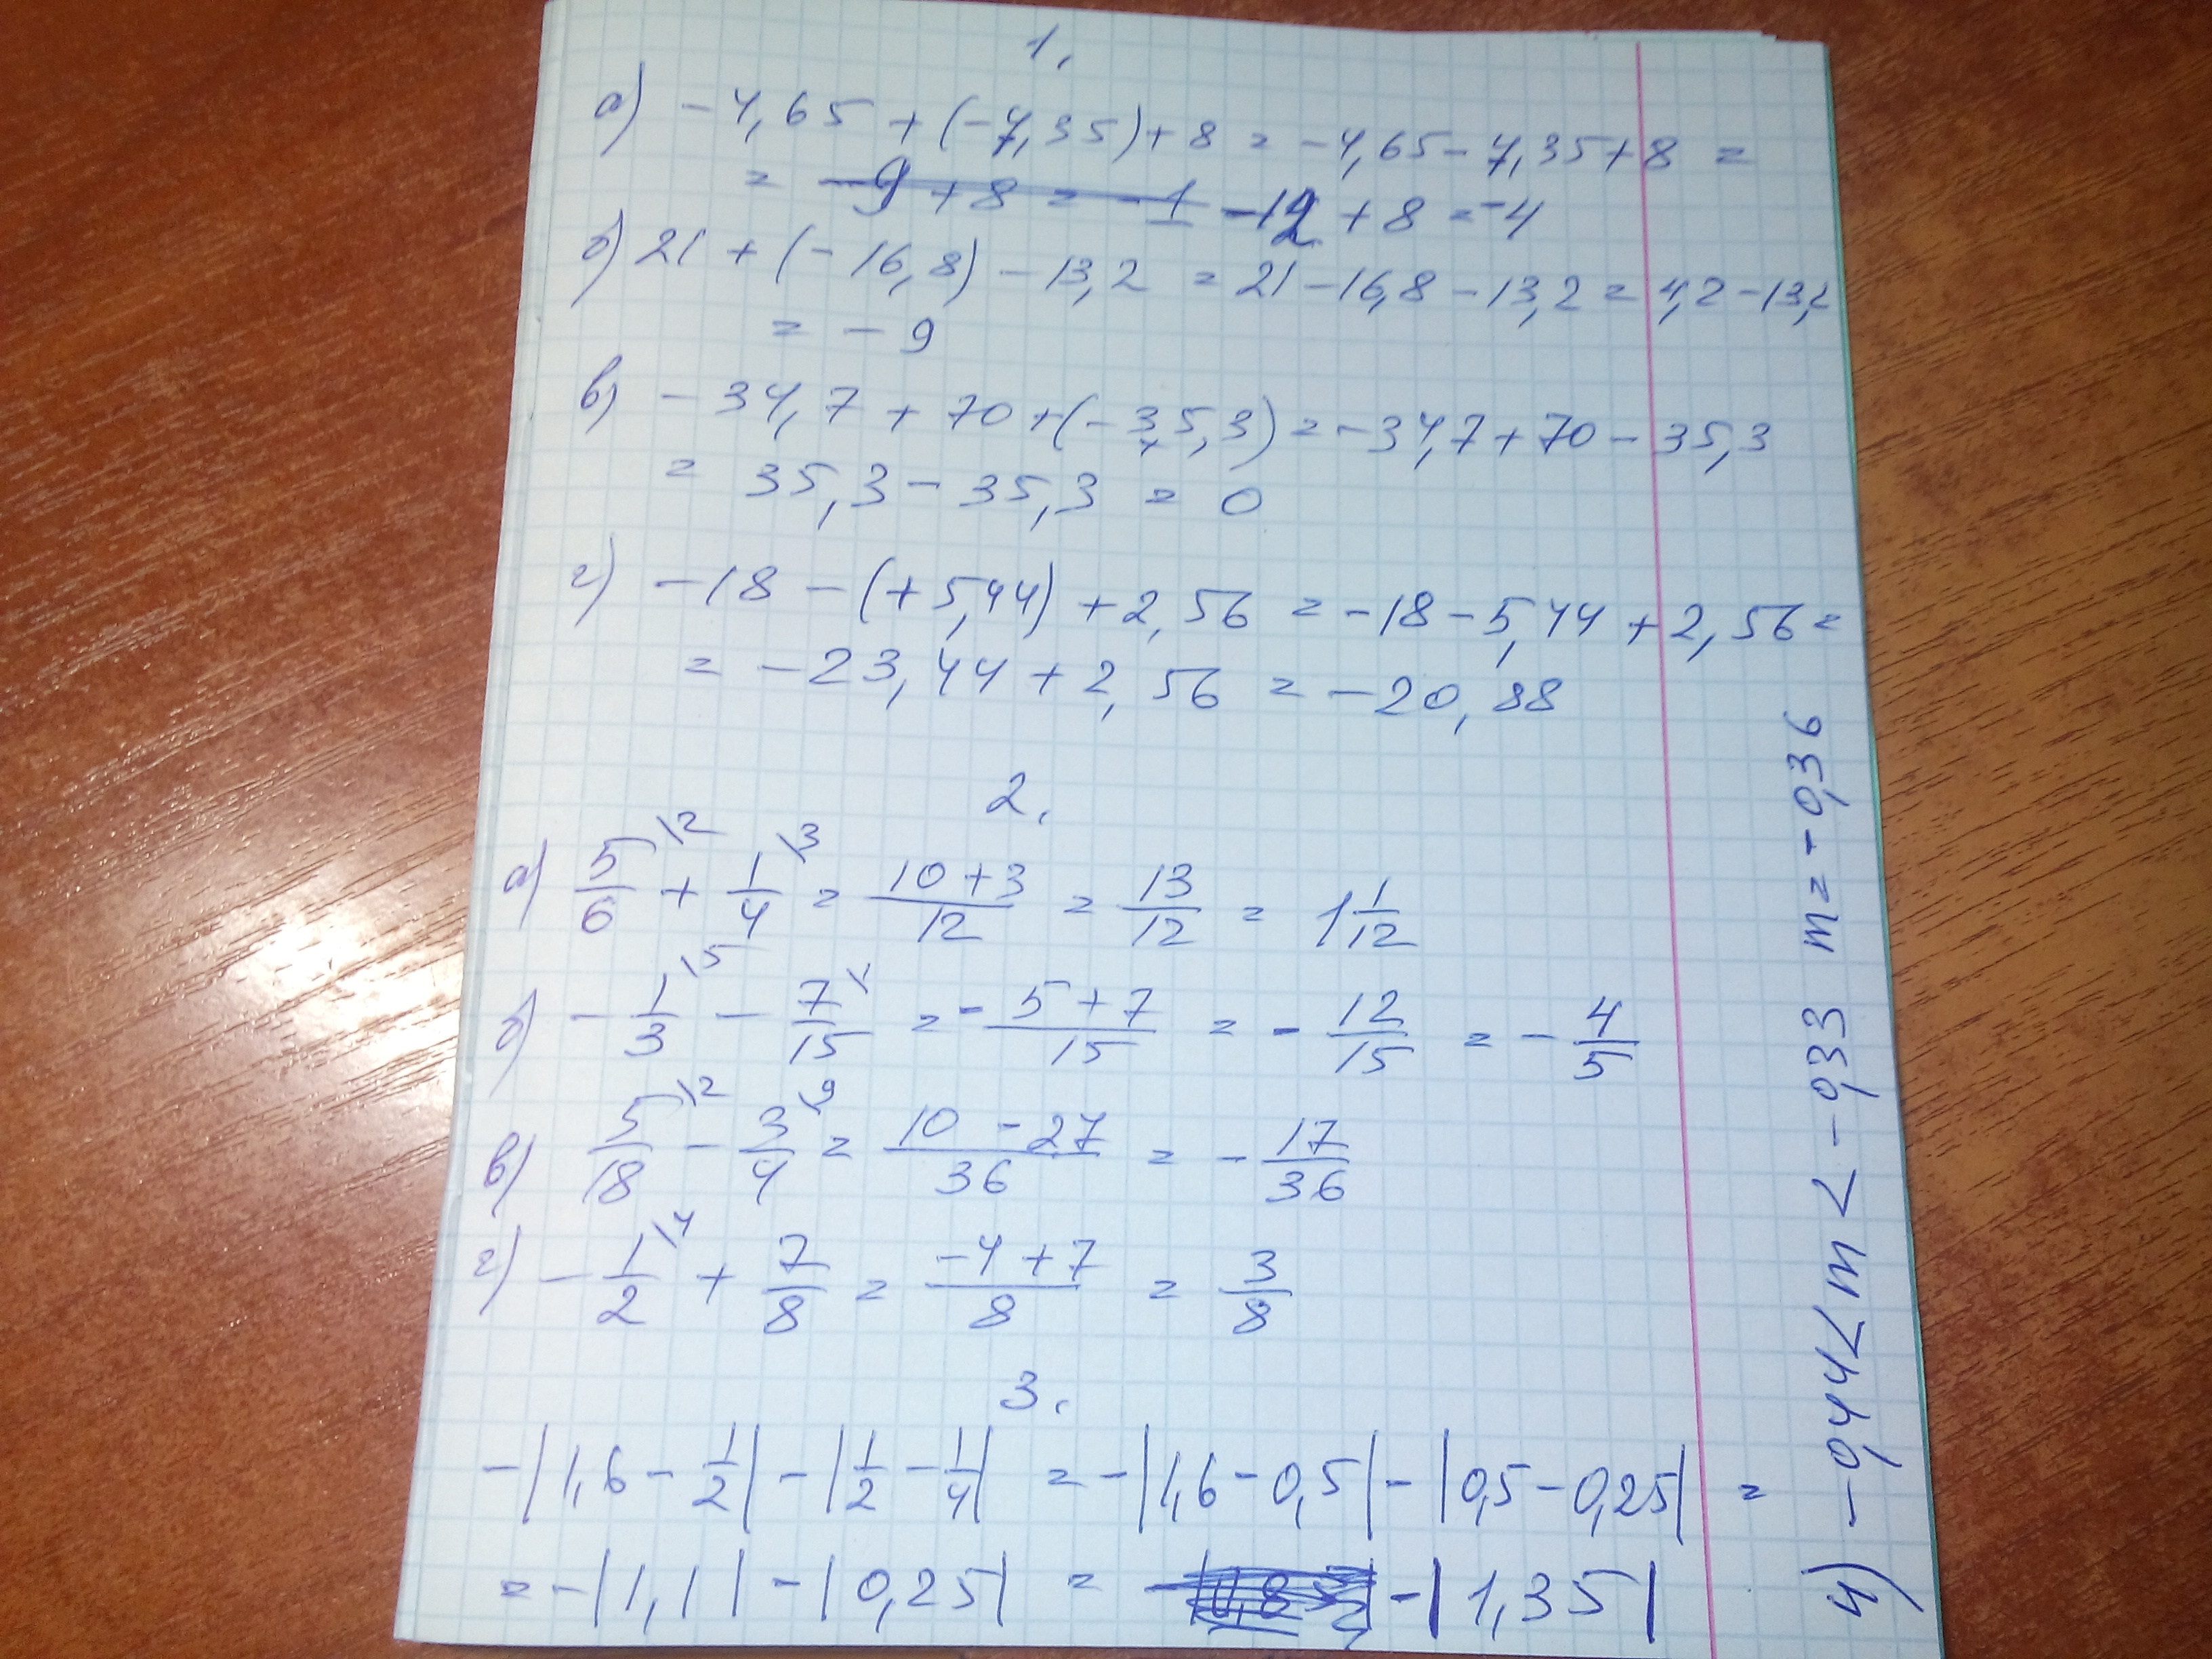 1.
а) -4,65 + (-7,35) + 8 = -4,65 - 7,35 + 8 =
= -9 + 8 = -1 -12 + 8 = -4
б) 21 + (-16,8) - 13,2 = 21 - 16,8 - 13,2 = 4,2 - 13,2
= -9
в) -34,7 + 70 + (-35,3) = -34,7 + 70 - 35,3
= 35,3 - 35,3 = 0
г) -18 - (+5,44) + 2,56 = -18 - 5,44 + 2,56 =
= -23,44 + 2,56 = -20,88
2.
а) 5/6 \2 + 1/4 \3 = (10 + 3)/12 = 13/12 = 1 1/12
б) -1/3 \5 - 7/15 \1 = -(5 + 7)/15 = -12/15 = -4/5
в) 5/18 \2 - 3/4 \9 = (10 - 27)/36 = -17/36
г) -1/2 \4 + 7/8 = (-4 + 7)/8 = 3/8
3.
-|1,6 - 1/2| - |1/2 - 1/4| = -|1,6 - 0,5| - |0,5 - 0,25| =
= -|1,1| - |0,25| = -|1,35|
4) -0,44 < m < -0,33 m = -0,36